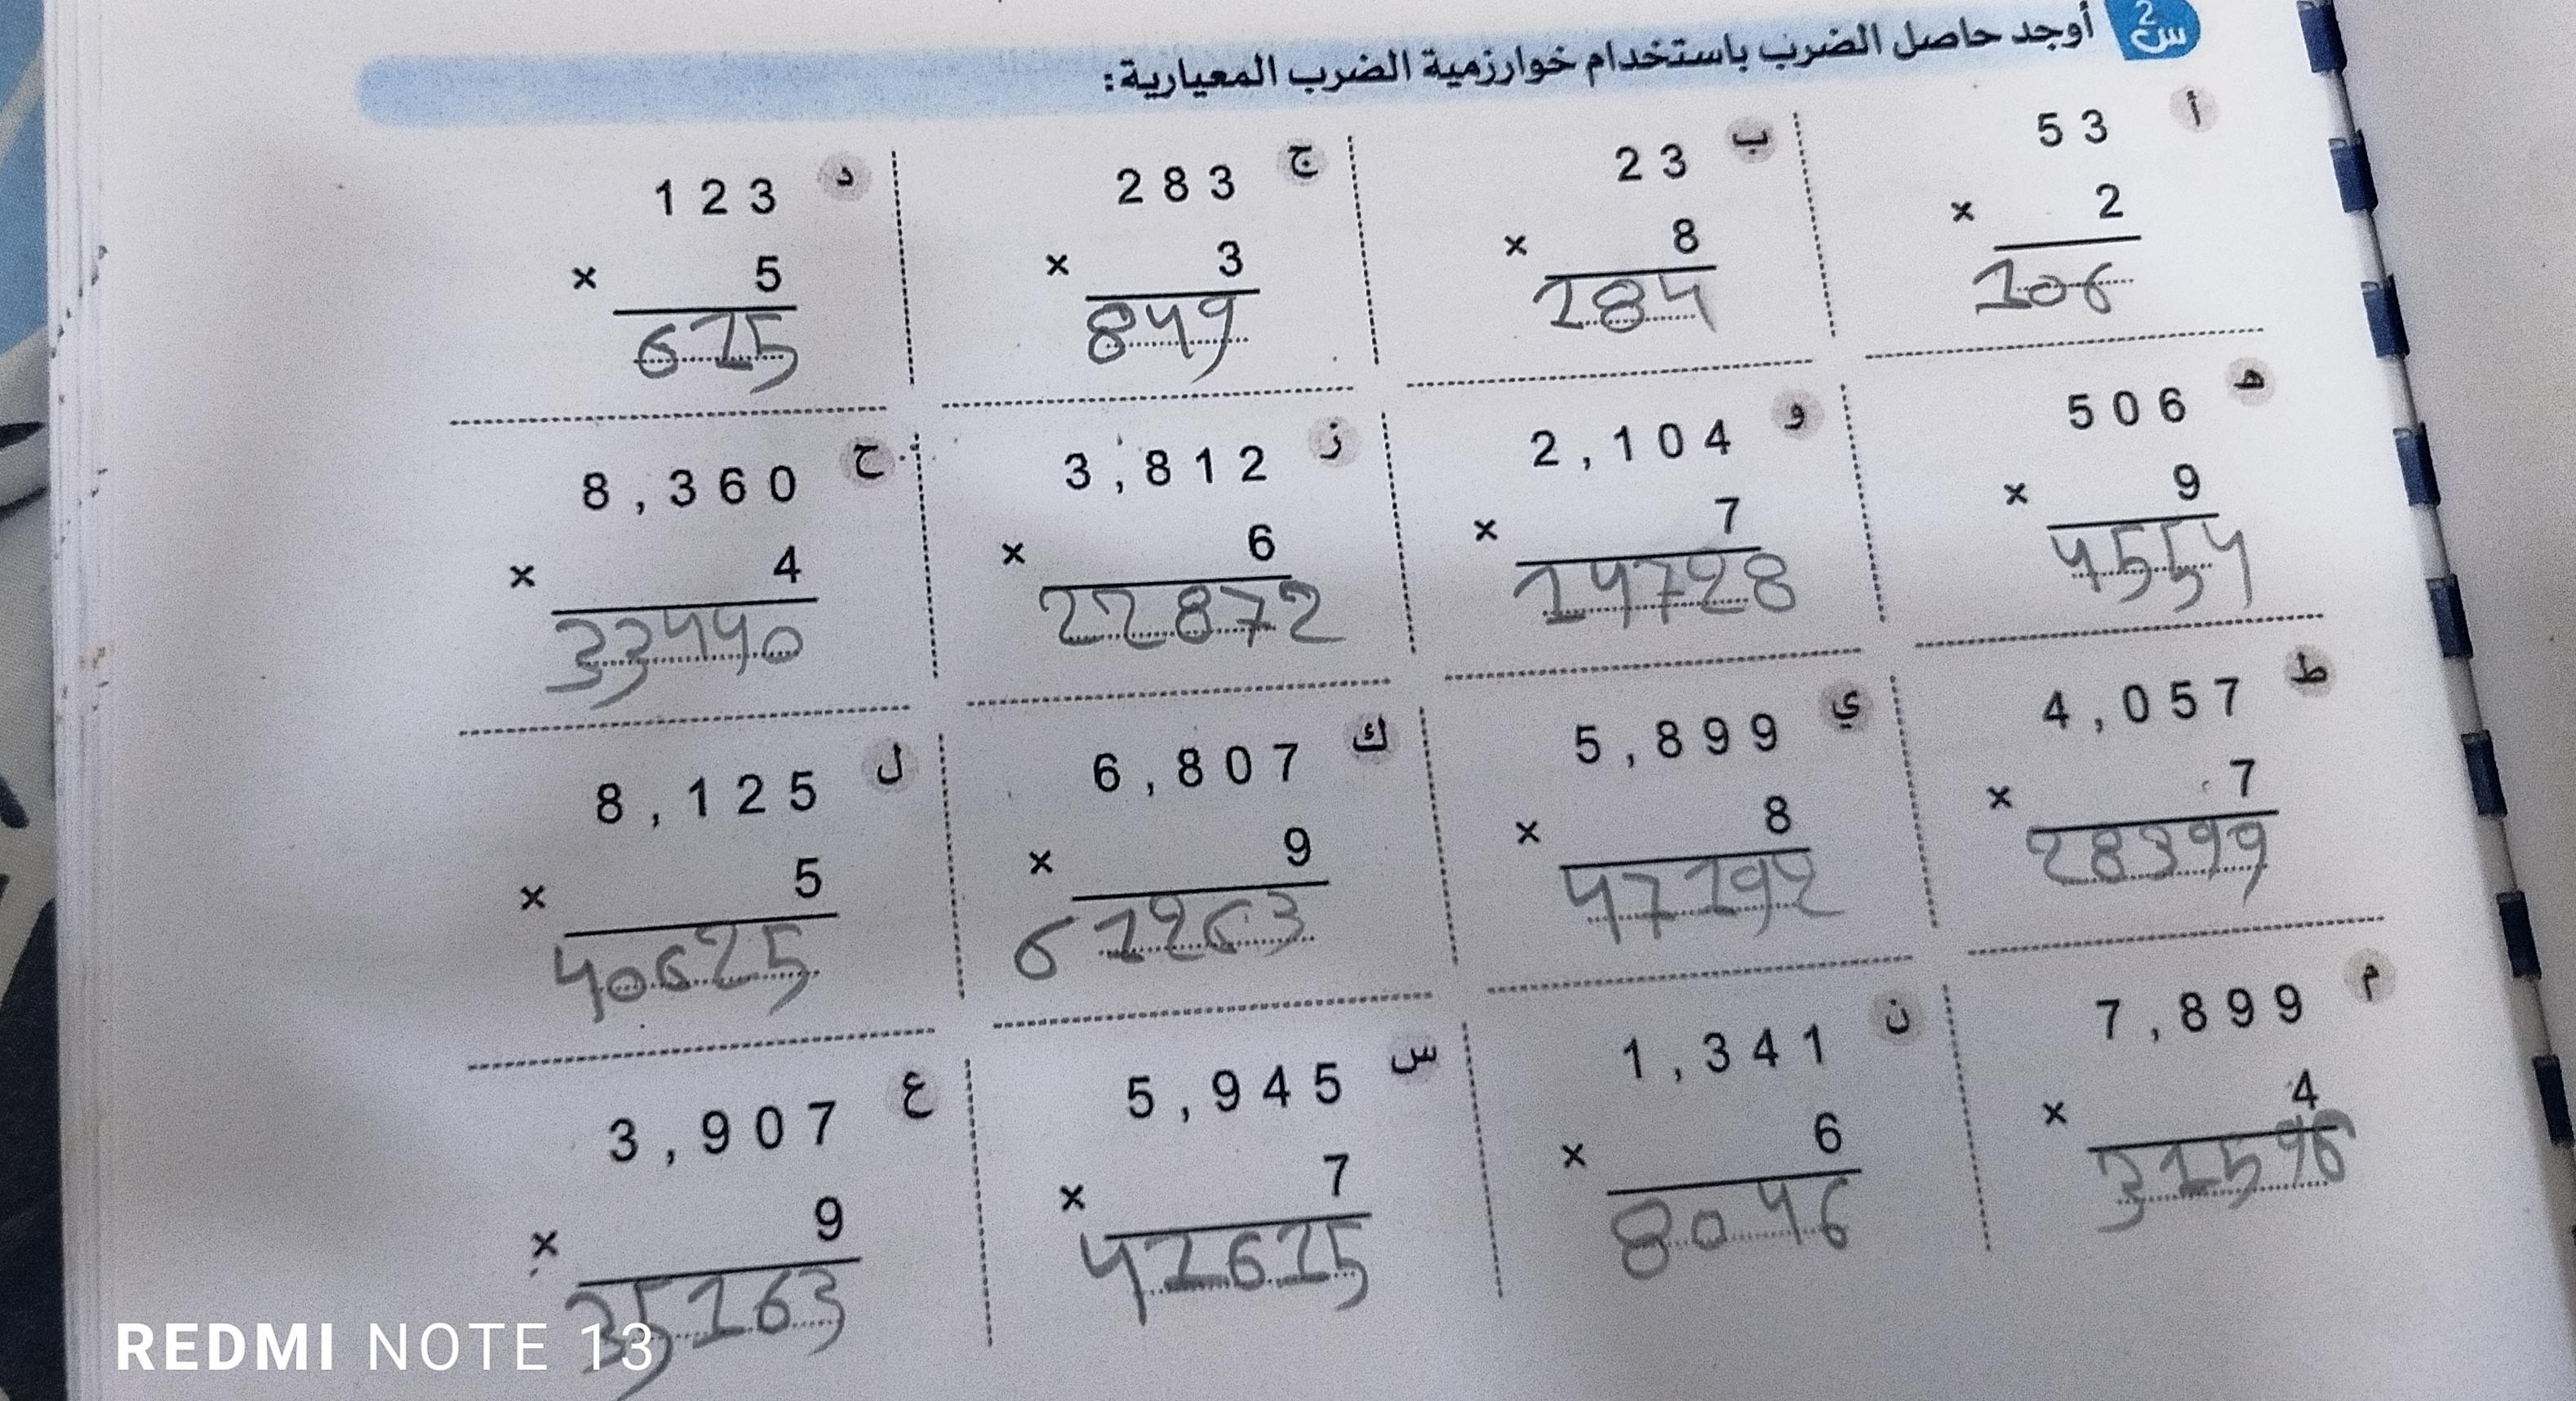 س2 أوجد حاصل الضرب باستخدام خوارزمية الضرب المعيارية:
أ
53
× 2
106
ب
23
× 8
184
ج
283
× 3
849
د
123
× 5
615
هـ
506
× 9
4554
و
2,104
× 7
14728
ز
3,812
× 6
22872
ح
8,360
× 4
33440
ط
4,057
× 7
28399
ي
5,899
× 8
47192
ك
6,807
× 9
61263
ل
8,125
× 5
40625
م
7,899
× 4
31596
ن
1,341
× 6
8046
س
5,945
× 7
41615
ع
3,907
× 9
35163
REDMI NOTE 13